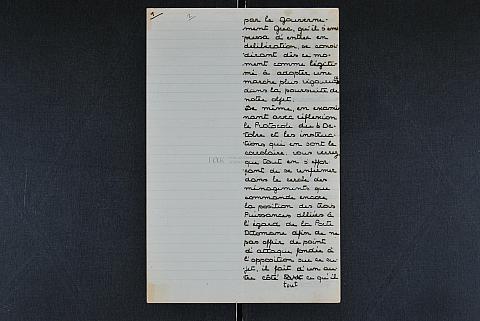 par le Gouverne-
ment Grec, qu'il s'em
pressa d'entrer en
délibération, se consi
dérant dès ce mo-
ment comme légiti-
mé à adopter une
marche plus vigoureuse
dans la poursuite de
notre objet.
De même, en exami
nant avec réflexion
le Protocole du 6 Oc-
tobre et les instruc-
tions qui en sont le
corollaire, vous verrez
que tout en s'effor
çant de se renfermer
dans le cercle des
ménagements que
commande encore
la position des trois
Puissances alliées à
l'égard de la Porte
Ottomane afin de ne
pas offrir de point
d'attaque fondée à
l'opposition sur ce su-
jet, il fait d'un au-
tre côté ce qu'il
tout